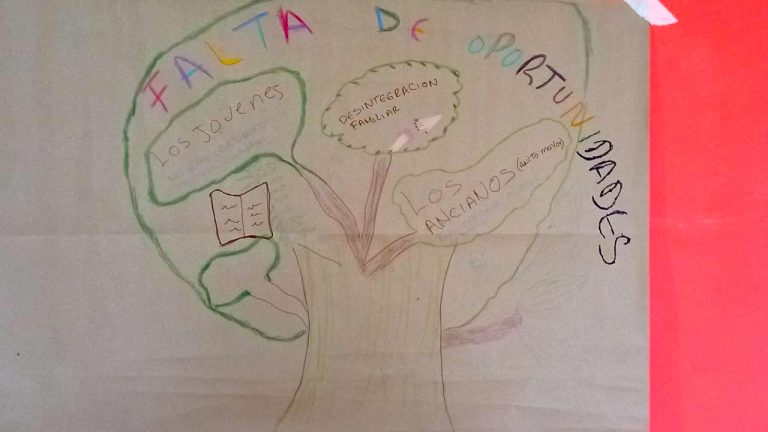 FALTA DE OPORTUNIDADES
LOS JOVENES
DESINTEGRACION
FAMILIAR
LOS
ANCIANOS